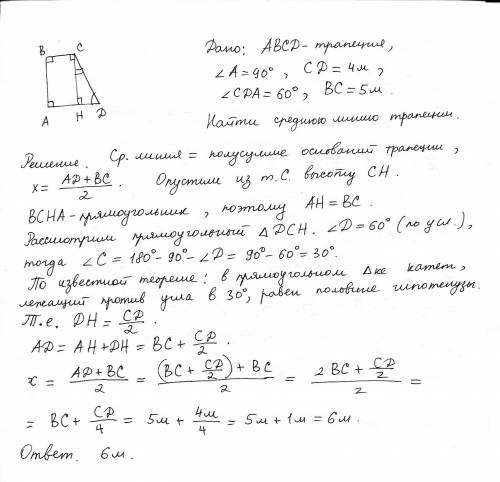 B C
A H D
Дано: ABCD - трапеция,
∠A = 90°, CD = 4м,
∠CDA = 60°, BC = 5м.
Найти среднюю линию трапеции.
Решение. Ср. линия = полусумме оснований трапеции,
x = (AD + BC)/2. Опустим из т. C. высоту CH.
BCHA - прямоугольник, поэтому AH = BC.
Рассмотрим прямоугольный △DCH. ∠D = 60° (по усл.),
тогда ∠C = 180° - 90° - ∠D = 90° - 60° = 30°.
По известной теореме: в прямоугольном △ке катет,
лежащий против угла в 30°, равен половине гипотенузы.
Т.е. DH = CD/2.
AD = AH + DH = BC + CD/2.
x = (AD + BC)/2 = ((BC + CD/2) + BC)/2 = (2BC + CD/2)/2 =
= BC + CD/4 = 5м + 4м/4 = 5м + 1м = 6м.
Ответ. 6м.